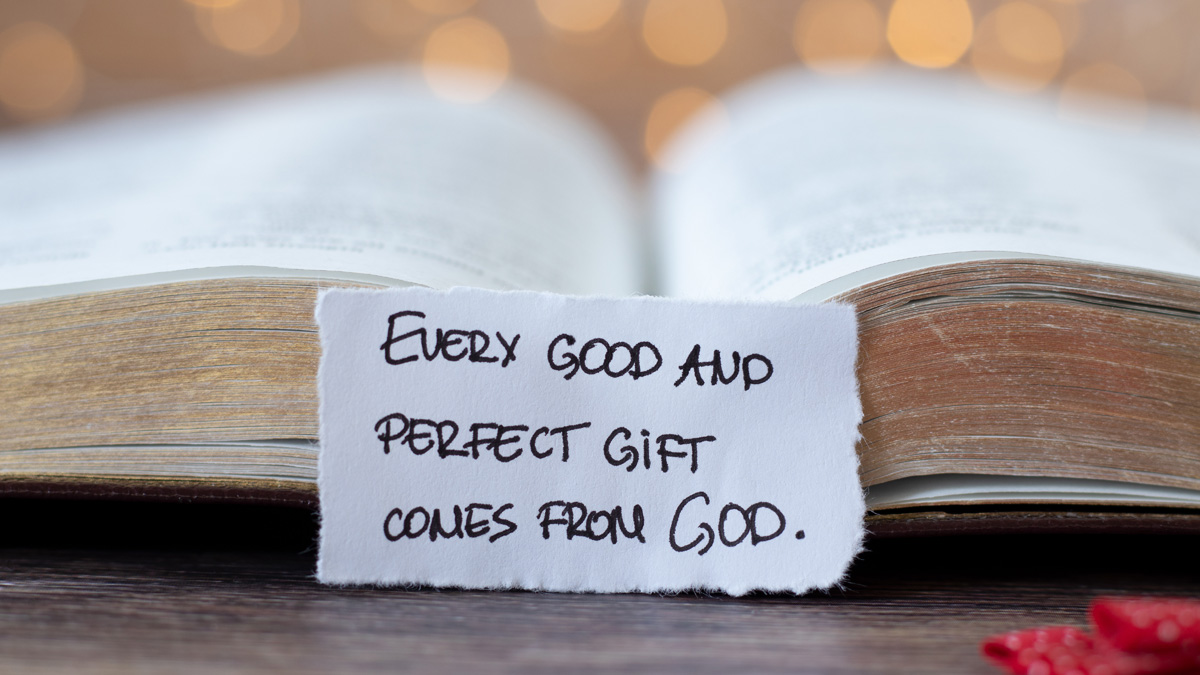 EVERY GOOD AND
PERFECT GIFT
COMES FROM GOD.